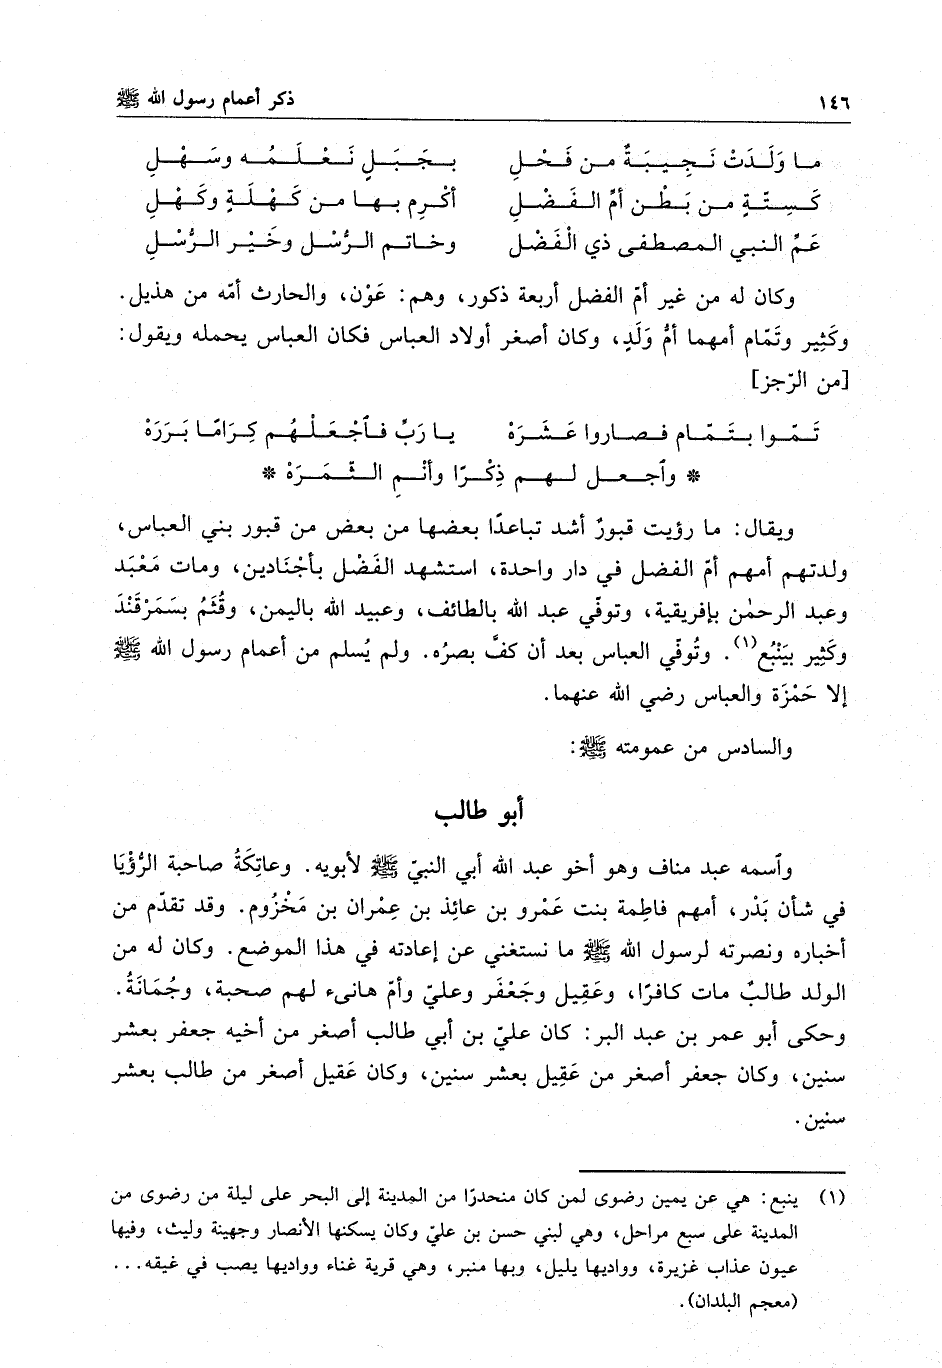 ١٤٦ ذكر أعمام رسول الله ﷺ
مـا وَلَـدَتْ نَـجِـيـبَـةٌ مـن فَـحْـلِ بـجَـبَـلٍ نَـعْـلَـمُـه وسَـهْـلِ
كَـسِـتّـةٍ مـن بَـطْـن أمِّ الـفَـضْـلِ أكْـرِم بـهـا مـن كَـهْـلَـةٍ وكَـهْـلِ
عَـمِّ النبي المصطفى ذي الْفَضْل وخـاتـم الـرُّسْـل وخَـيْـر الـرُّسْـلِ
وكان له من غير أمّ الفضل أربعة ذكور، وهم: عَوْن، والحارث أمّه من هذيل.
وكَثِير وتَمّام أمهما أمُّ وَلَدٍ، وكان أصغر أولاد العباس فكان العباس يحمله ويقول:
[من الرّجز]
تَـمّـوا بـتَـمّـام فـصـاروا عَـشَـرَهْ يـا رَبِّ فـٱجْـعَـلْـهُـم كِـرَامًـا بَـرَرَهْ
* وٱجـعـل لـهـم ذِكْـرًا وأنْـمِ الـثَّـمَـرَهْ *
ويقال: ما رؤيت قبورٌ أشد تباعدًا بعضها من بعض من قبور بني العباس،
ولدتهم أمهم أمّ الفضل في دار واحدة، استشهد الفَضْل بأجْنَادين، ومات مَعْبَد
وعبد الرحمٰن بإفريقية، وتوفّي عبد الله بالطائف، وعبيد الله باليمن، وقُثَمُ بسَمَرْقَنْدَ
وكَثِير بيَنْبُع(١). وتُوفّي العباس بعد أن كفَّ بصرُه. ولم يُسلم من أعمام رسول الله ﷺ
إلا حَمْزَة والعباس رضي الله عنهما.
والسادس من عمومته ﷺ:
أبو طالب
وٱسمه عبد مناف وهو أخو عبد الله أبي النبيّ ﷺ لأبويه. وعاتِكَةُ صاحبة الرُّؤْيَا
في شأن بَدْر، أمهم فاطِمة بنت عَمْرو بن عائِذ بن عِمْران بن مَخْزُوم. وقد تقدّم من
أخباره ونصرته لرسول الله ﷺ ما نستغني عن إعادته في هذا الموضع. وكان له من
الولد طالبٌ مات كافرًا، وعَقِيل وجَعْفَر وعليّ وأمّ هانىء لهم صحبة، وجُمَانَةُ.
وحكى أبو عمر بن عبد البر: كان عليّ بن أبي طالب أصغر من أخيه جعفر بعشر
سنين، وكان جعفر أصغر من عَقِيل بعشر سنين، وكان عَقيل أصغر من طالب بعشر
سنين.
(١) ينبع: هي عن يمين رضوى لمن كان منحدرًا من المدينة إلى البحر على ليلة من رضوى من
المدينة على سبع مراحل، وهي لبني حسن بن عليّ وكان يسكنها الأنصار وجهينة وليث، وفيها
عيون عذاب غزيرة، وواديها يليل، وبها منبر، وهي قرية غناء وواديها يصب في غيقه...
(معجم البلدان).